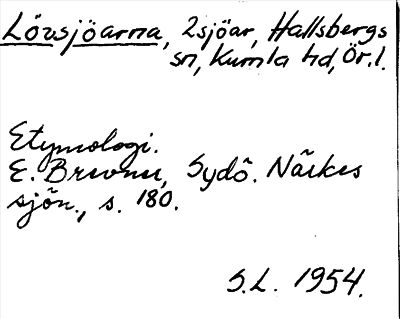 Lövsjöarna, 2sjöar, Hallsbergs
sn, Kumla hd, Ör.l.
Etymologi.
E. Brevner, Sydö. Närkes
sjön., s. 180.
S.L. 1954.